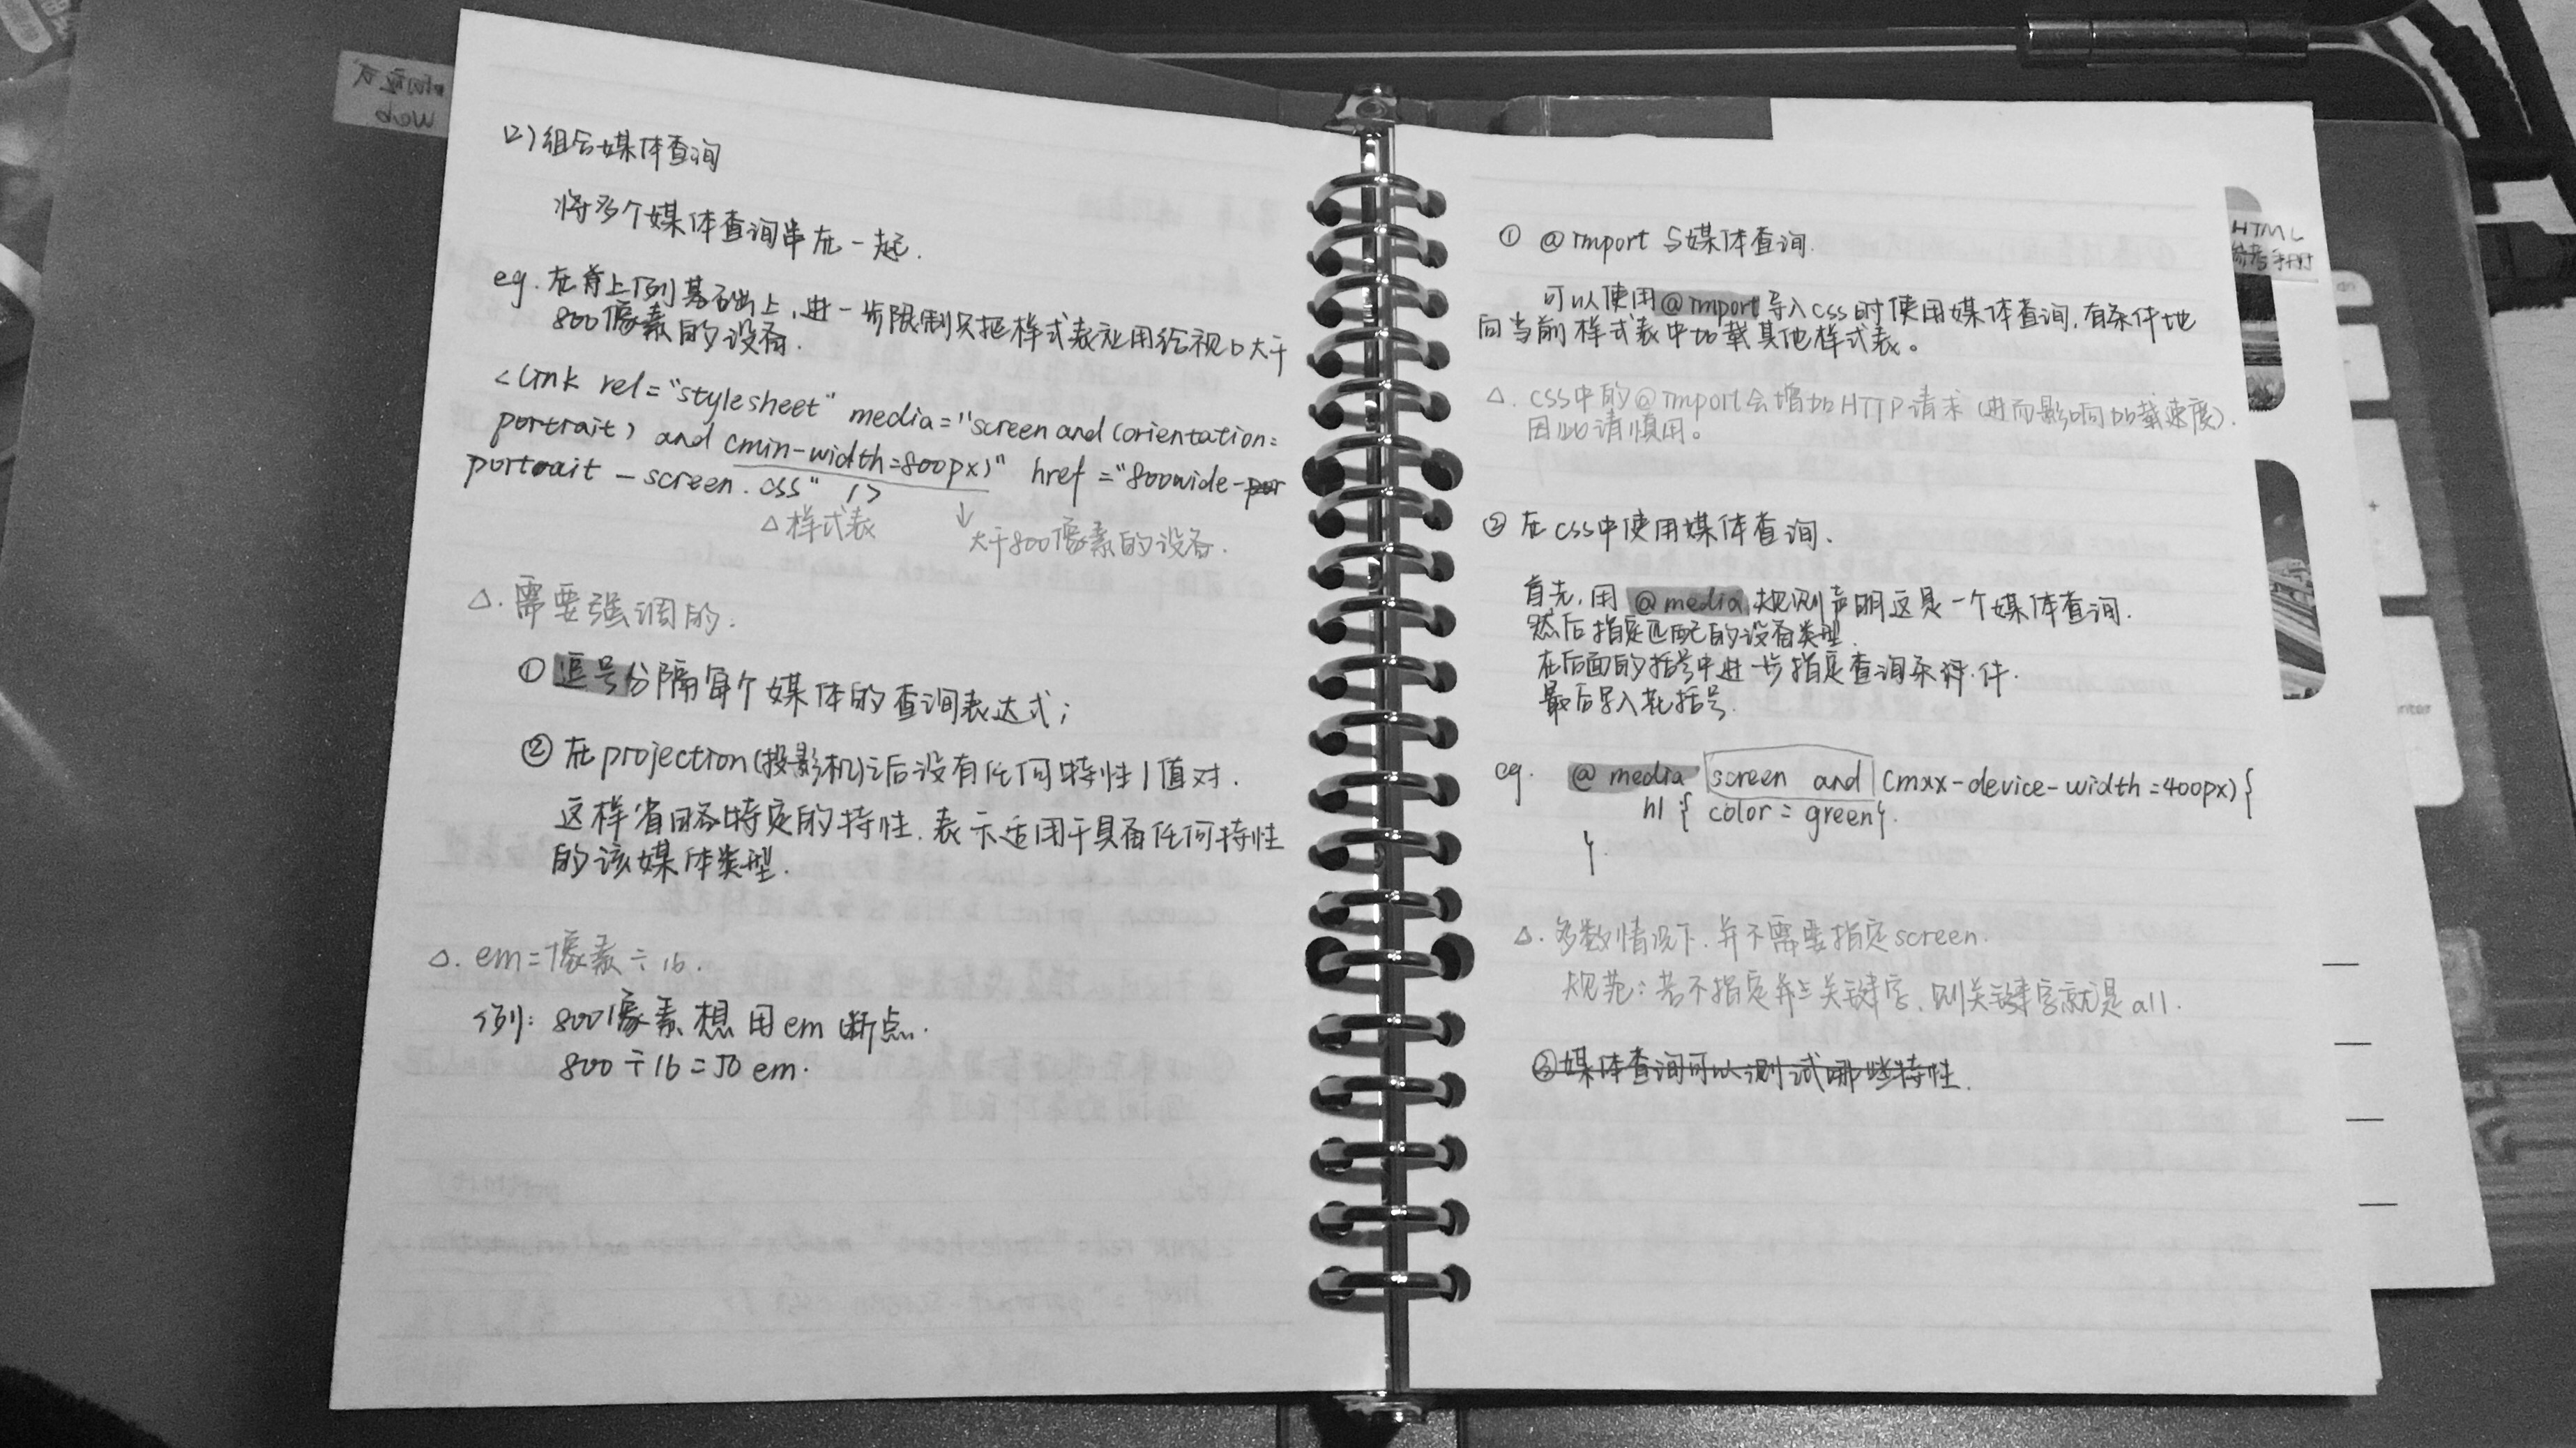 (2) 组合媒体查询
将多个媒体查询串在一起.
eg. 在首上例基础上,进一步限制只把样式表应用给视口大于
800像素的设备.
<link rel="stylesheet" media="screen and (orientation=
portrait) and (min-width=800px)" href="800wide-
portrait-screen.css" />
△样式表
↓
大于800像素的设备.
△. 需要强调的.
① 逗号分隔每个媒体的查询表达式;
② 在projection(投影机)之后没有任何特性/值对.
这样省略特定的特性.表示适用于具备任何特性
的该媒体类型.
△. em=像素÷16.
例: 800像素想用em断点.
800÷16=50em.
① @import与媒体查询.
可以使用@import导入css时使用媒体查询,有条件地
向当前样式表中加载其他样式表。
△. css中的@import会增加HTTP请求(进而影响加载速度).
因此请慎用。
② 在css中使用媒体查询.
首先,用@media规则声明这是一个媒体查询.
然后指定匹配的设备类型.
在后面的括号中进一步指定查询条件.
最后写入花括号.
eg. @media screen and (max-device-width=400px){
h1{ color=green}.
}.
△. 多数情况下.并不需要指定screen.
规范:若不指定关键字,则关键字就是all.
③媒体查询可以测试哪些特性.
响应式
Web
HTML
参考手册